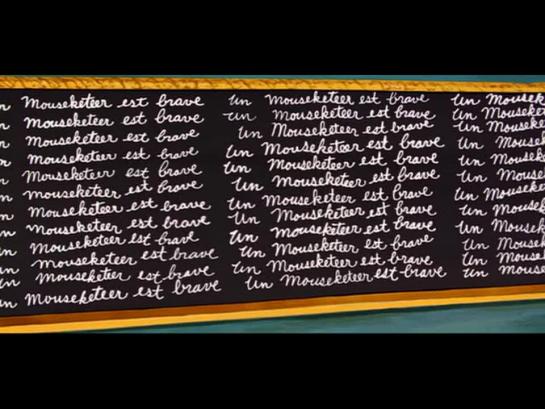 n Mouseketeer est brave Un Mouseketeer est brave Un Mousek
n Mouseketeer est brave Un Mouseketeer est brave Un Mouseke
n Mouseketeer est brave Un Mouseketeer est brave Un Mouseke
n Mouseketeer est brave Un Mouseketeer est brave Un Mous
n Mouseketeer est brave Un Mouseketeer est brave Un Mousek
n Mouseketeer est brave Un Mouseketeer est brave Un Mouse
n Mouseketeer est brave Un Mouseketeer est brave Un Mouseke
n Mouseketeer est brave Un Mouseketeer est brave Un Mouse
n Mouseketeer est brave Un Mouseketeer est brave Un Mousek
n Mouseketeer est brave Un Mouseketeer est brave Un Mouse
n Mouseketeer est brave Un Mouseketeer est brave Un Mouse
un Mouseketeer est brave Un Mouseketeer est brave Un Mouse